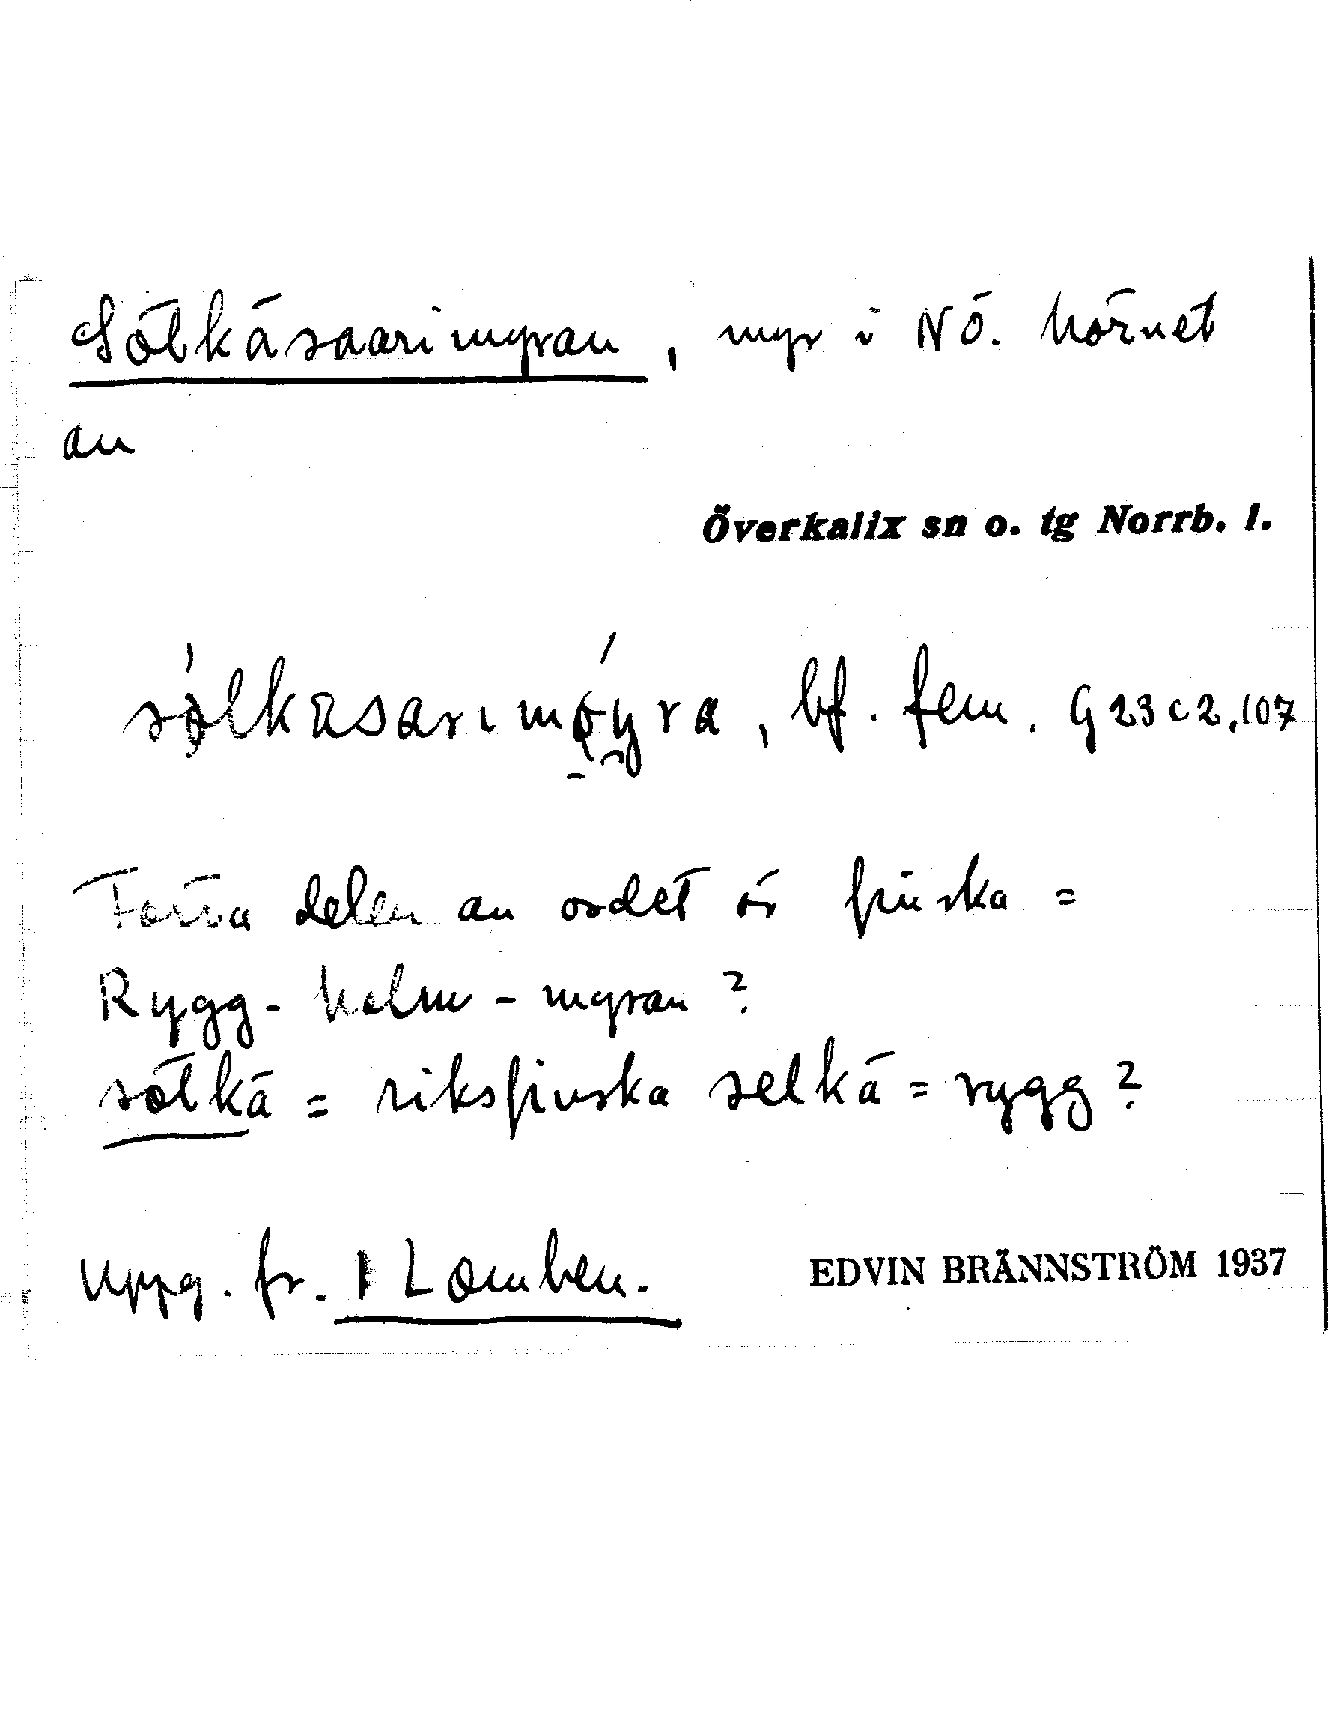 Sölkäsaarimyran, myr i NÖ. hörnet
av
Överkalix sn o. tg Norrb. l.
sölkasarımöyra, bf. fem. G 23 c 2, 107
Förra delen av ordet är finska =
Rygg-holm-myran?
sölkä = riksfinska selkä = rygg?
Uppg. fr. Lomben.
EDVIN BRÄNNSTRÖM 1937